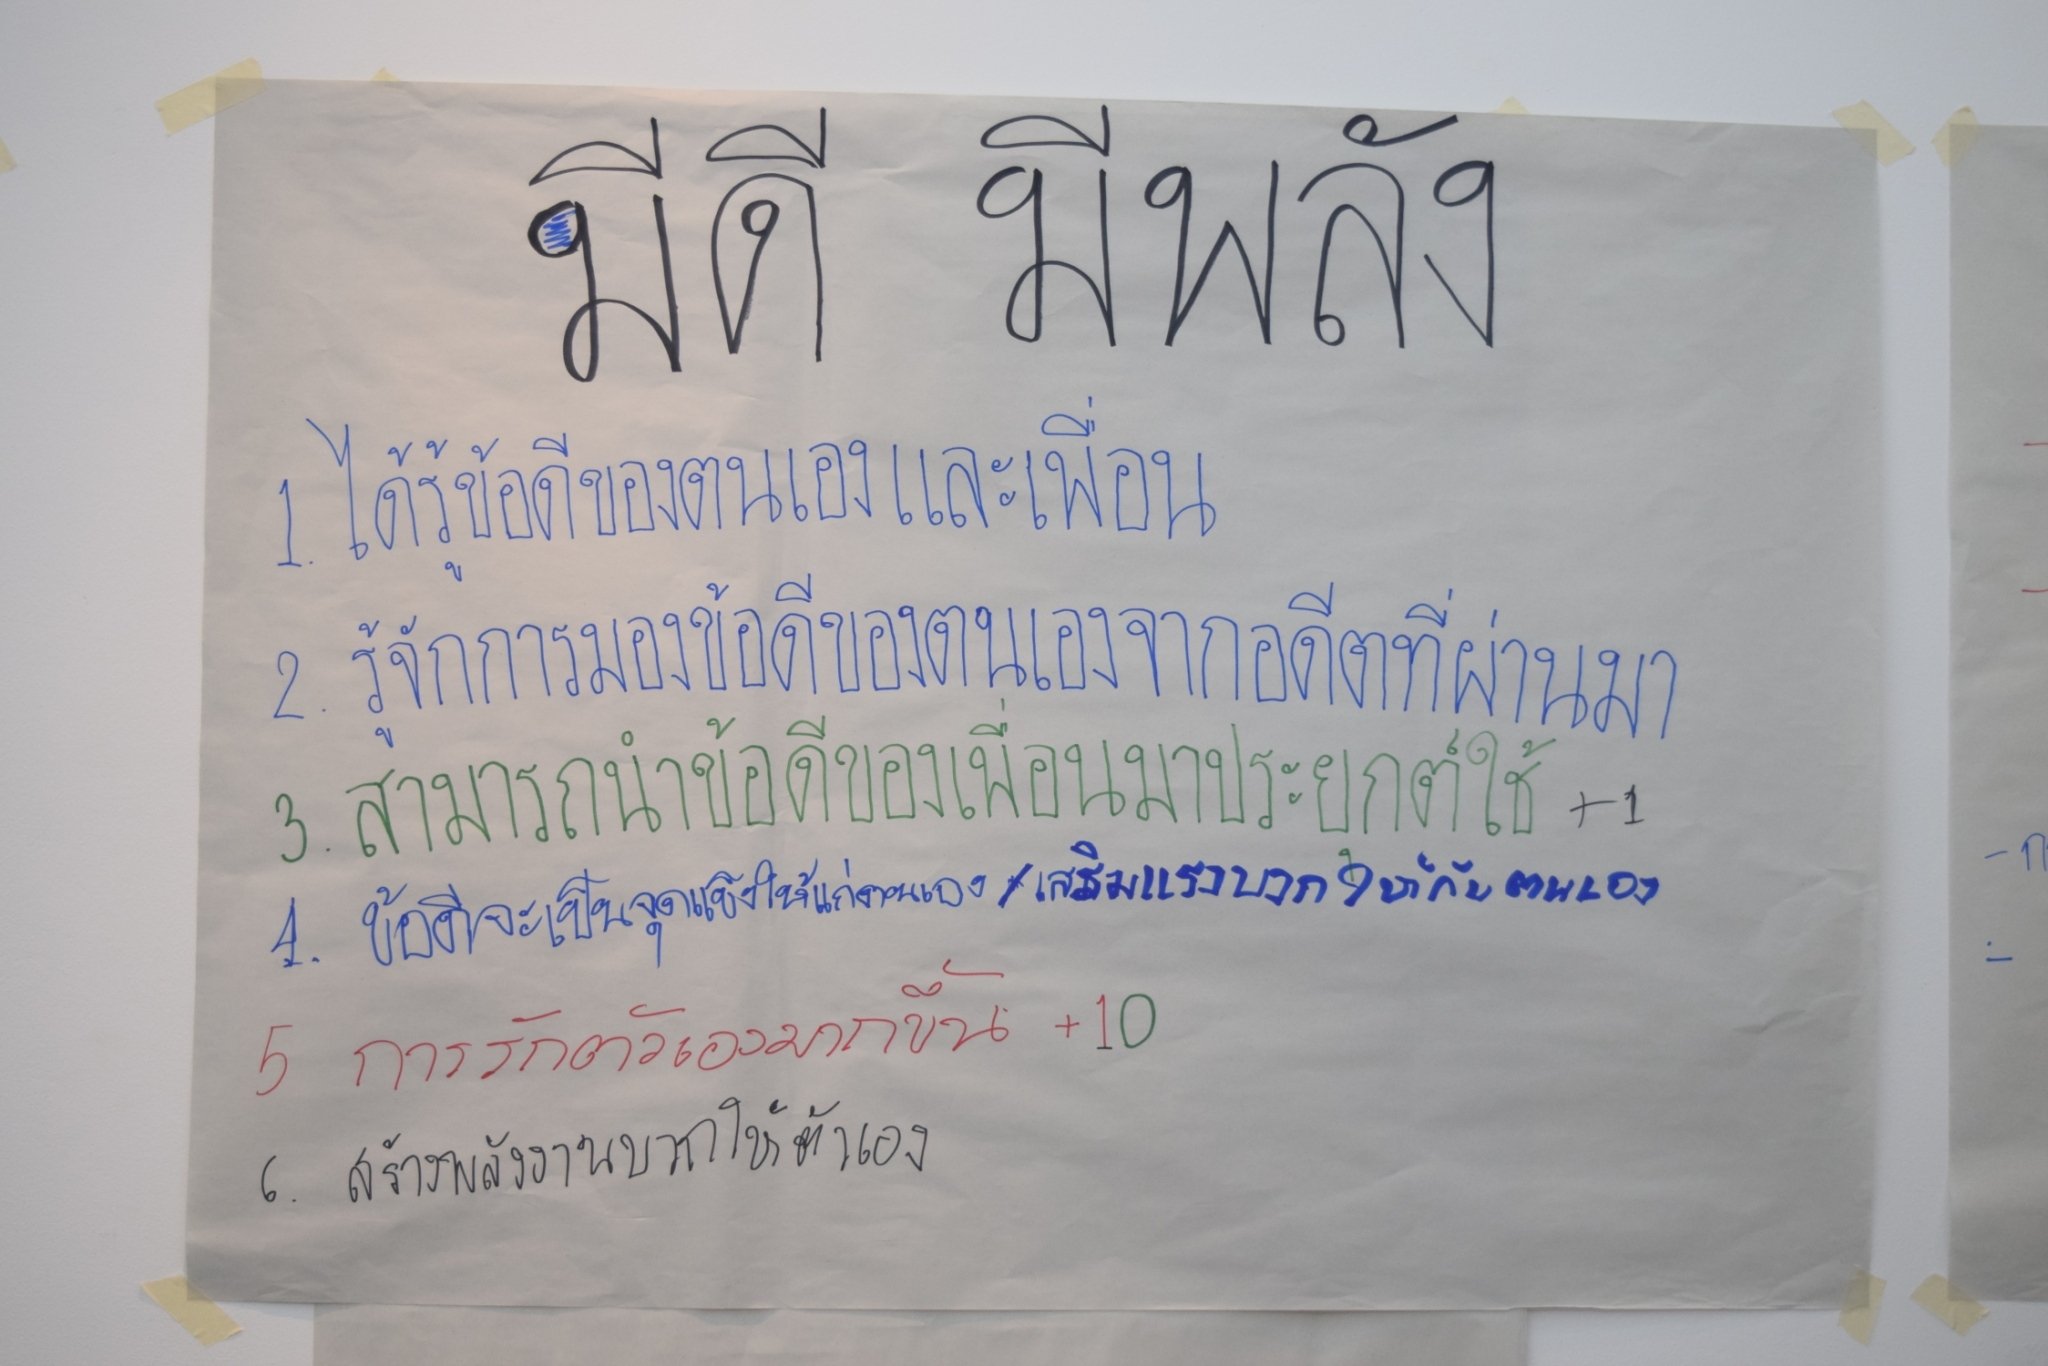 มีดี มีพลัง
1. ได้รู้ข้อดีของตนเองและเพื่อน
2. รู้จักการมองข้อดีของตนเองจากอดีตที่ผ่านมา
3. สามารถนำข้อดีของเพื่อนมาประยุกต์ใช้ +1
4. ข้อดีจะเป็นจุดแข็งให้แก่ตนเอง / เสริมแรงบวกให้กับตนเอง
5 การรักตัวเองมากขึ้น +10
6. สร้างพลังงานบวกให้ตัวเอง